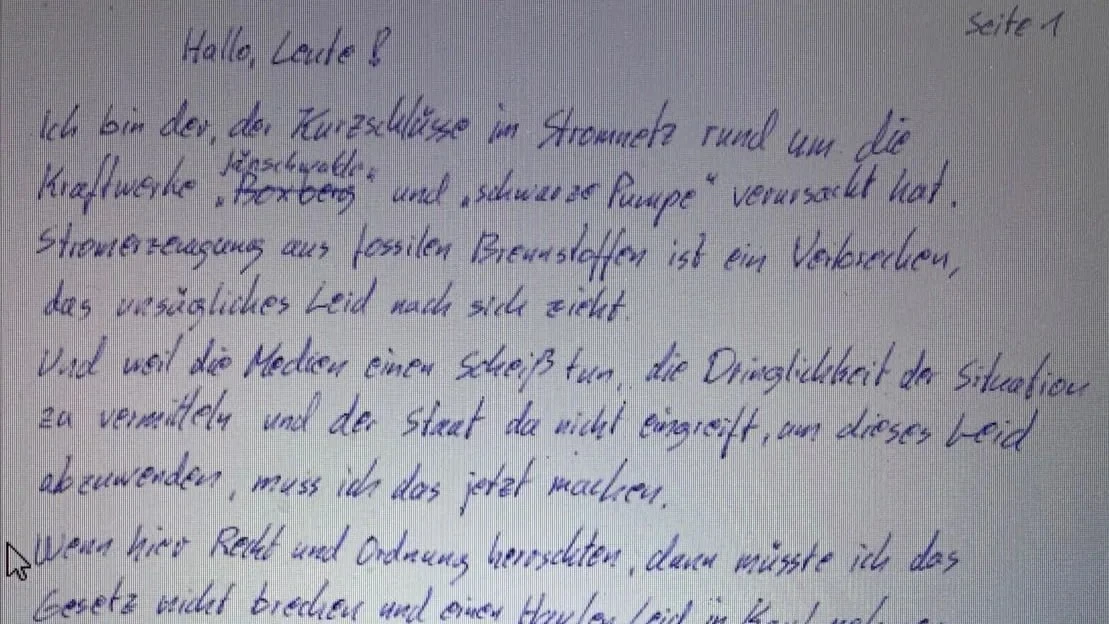 Seite 1
Hallo, Leute!
Ich bin der, der Kurzschlüsse im Stromnetz rund um die
Jänschwalde
Kraftwerke „Boxberg“ und „schwarze Pumpe“ verursacht hat.
Stromerzeugung aus fossilen Brennstoffen ist ein Verbrechen,
das unsägliches Leid nach sich zieht.
Und weil die Medien einen Scheiß tun, die Dringlichkeit der Situation
zu vermitteln und der Staat da nicht eingreift, um dieses Leid
abzuwenden, muss ich das jetzt machen.
Wenn hier Recht und Ordnung herrschten, dann müsste ich das
Gesetz nicht brechen und einen Haufen Leid in Kauf